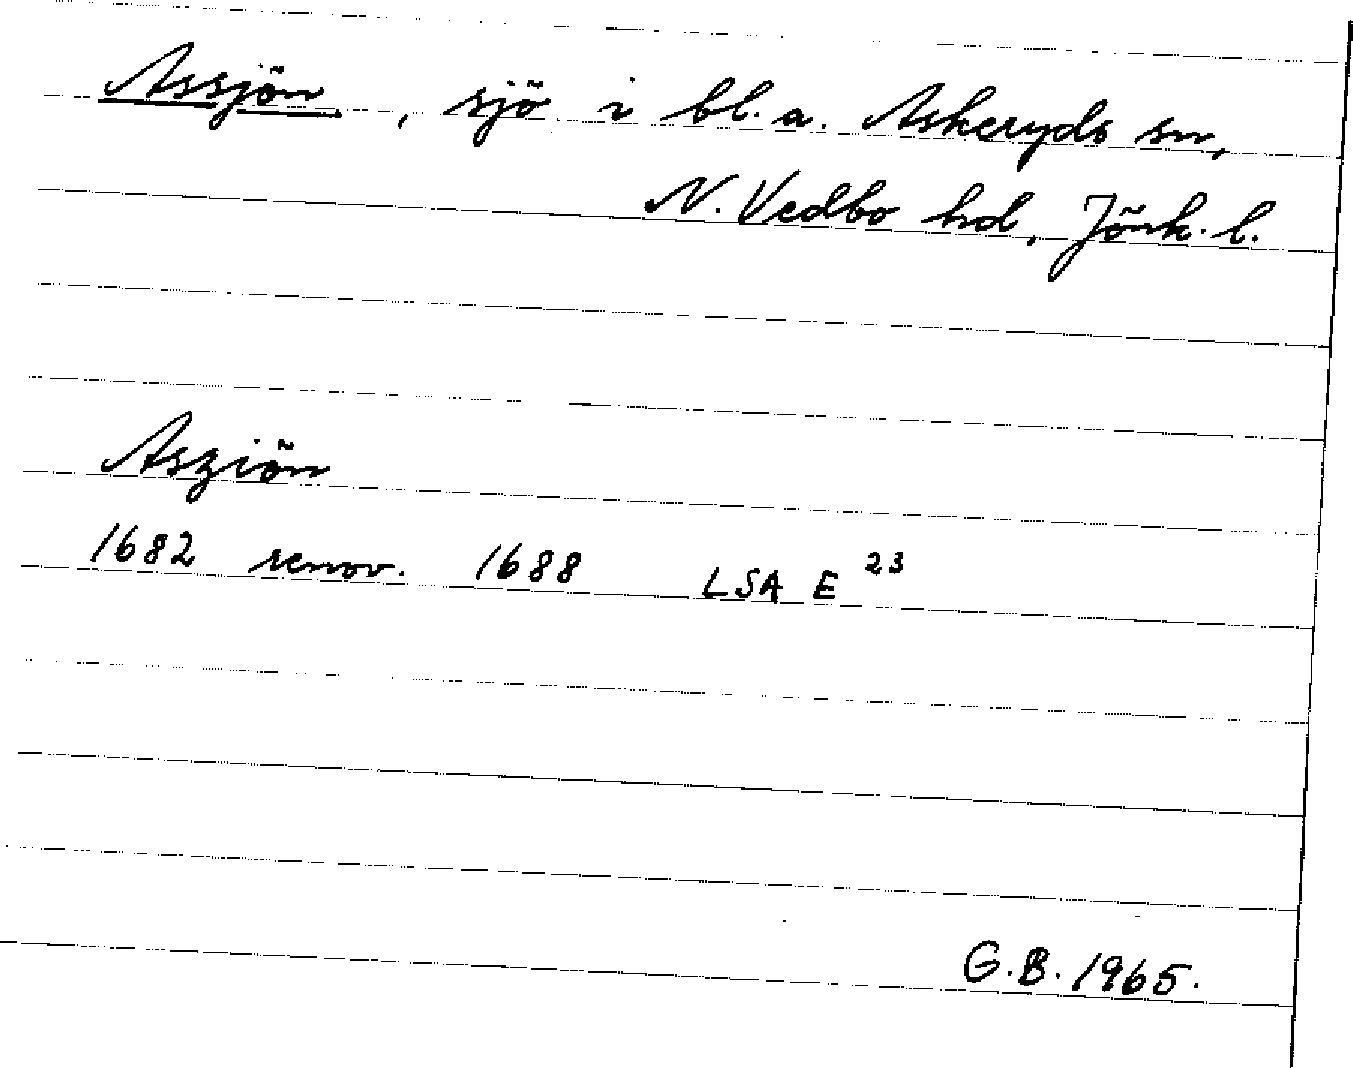 Assjön, sjö i bl.a. Askeryds sn,
N. Vedbo hd, Jönk. l.
Asziön
1682 renov. 1688 LSA E 23
G.B. 1965.